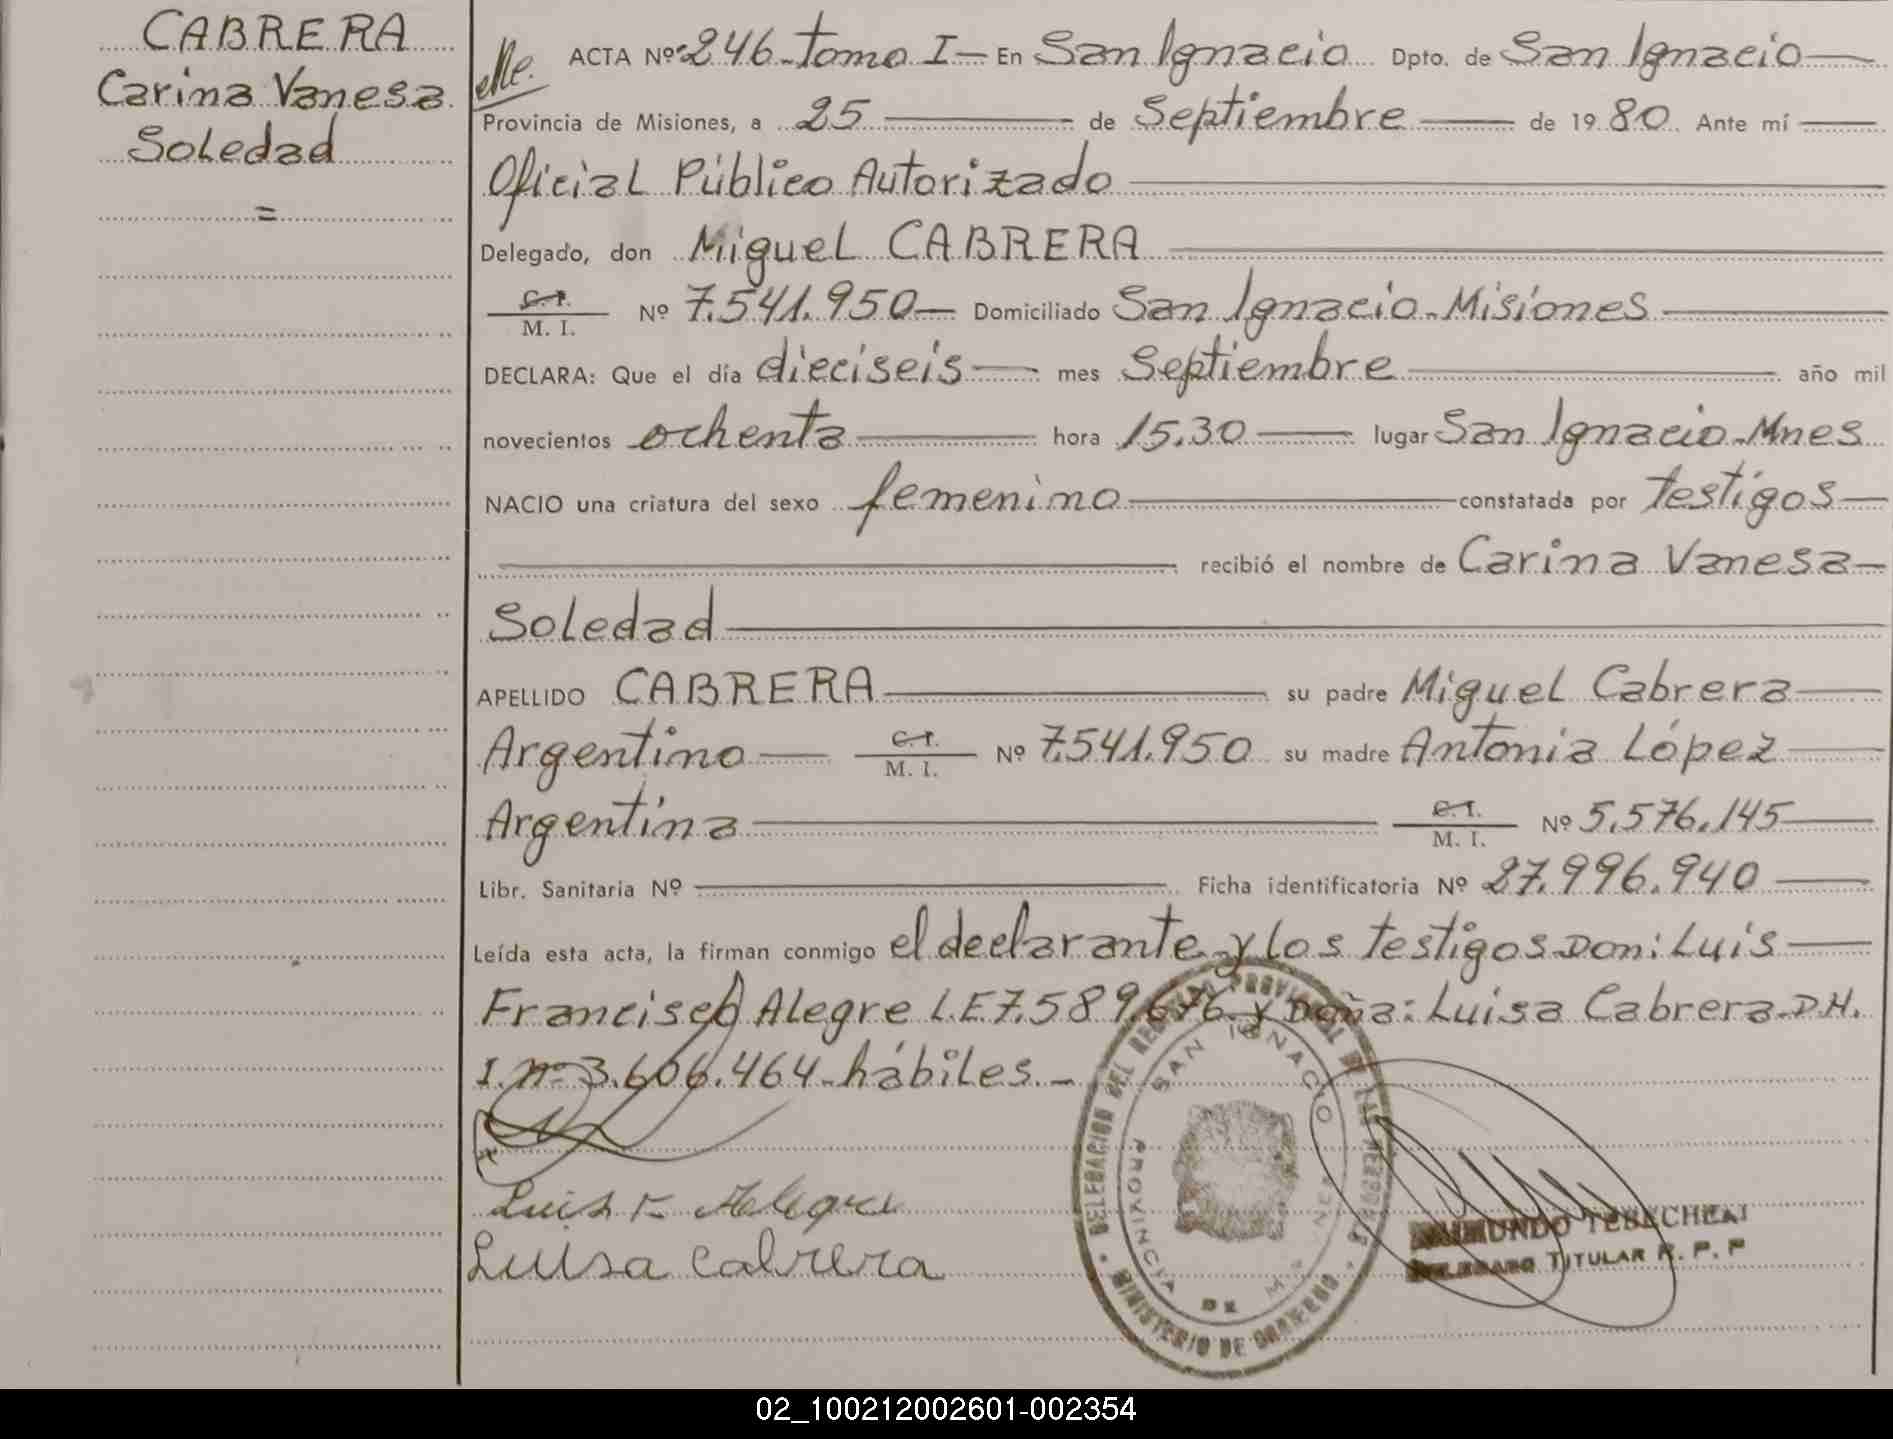 CABRERA
Carina Vanesa
Soledad
=
ACTA Nº 246-Tomo I- En San Ignacio Dpto. de San Ignacio
Provincia de Misiones, a 25 de Septiembre de 1980. Ante mí
Oficial Público Autorizado
Delegado, don Miguel CABRERA
C. I.
M. I. Nº 7.541.950 Domiciliado San Ignacio-Misiones
DECLARA: Que el día dieciseis mes Septiembre año mil
novecientos ochenta hora 15.30 lugar San Ignacio-Mnes
NACIO una criatura del sexo femenino constatada por testigos
recibió el nombre de Carina Vanesa
Soledad
APELLIDO CABRERA su padre Miguel Cabrera
Argentino C. I. M. I. Nº 7.541.950 su madre Antonia López
Argentina C. I. M. I. Nº 5.576.145
Libr. Sanitaria Nº Ficha identificatoria Nº 27.996.940
Leída esta acta, la firman conmigo el declarante y los testigos Don: Luis
Francisco Alegre L.E 7.589.676 y Doña: Luisa Cabrera-D.N.
I. nº 3.606.464-hábiles.-
Luis F. Alegre
Luisa Cabrera
DELEGACION DEL REGISTRO PROVINCIAL DE LAS PERSONAS
SAN IGNACIO
PROVINCIA DE MISIONES
MINISTERIO DE GOBIERNO
RAIMUNDO
DELEGADO TITULAR R. P. P
02_100212002601-002354